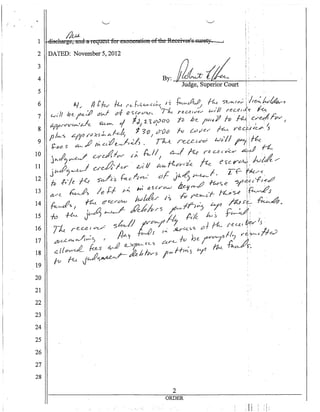 discharge, and a request for exoneration of the Receiver's surety.
1
2 DATED: November 5, 2012
3
4 By:
5 Judge, Superior Court
6 4. After the refinancing is funded, the senior lienholders
7 will be paid out of escrow. The receiver will receive the
8 approximate sum of $2,330,000 to be paid to the creditor,
9 plus approximately $30,000 to cover the receiver's
10 fees and incidentals. The receiver will pay the
11 judgment creditor in full, and the receiver and the
12 judgment creditor will authorize the escrow holder
to file the satisfaction of judgment. If there
13 are funds left in escrow beyond those specified
14 funds, the escrow holder is to remit those funds
15 to the judgment debtors putting up these funds.
16 The receiver shall promptly file his final
17 accounting. Any funds in excess of the receiver's
18 allowed fees and expenses are to be promptly remitted
19 to the judgment debtors putting up the funds.
20
21
22
23
24
25
26
27
28
2
ORDER